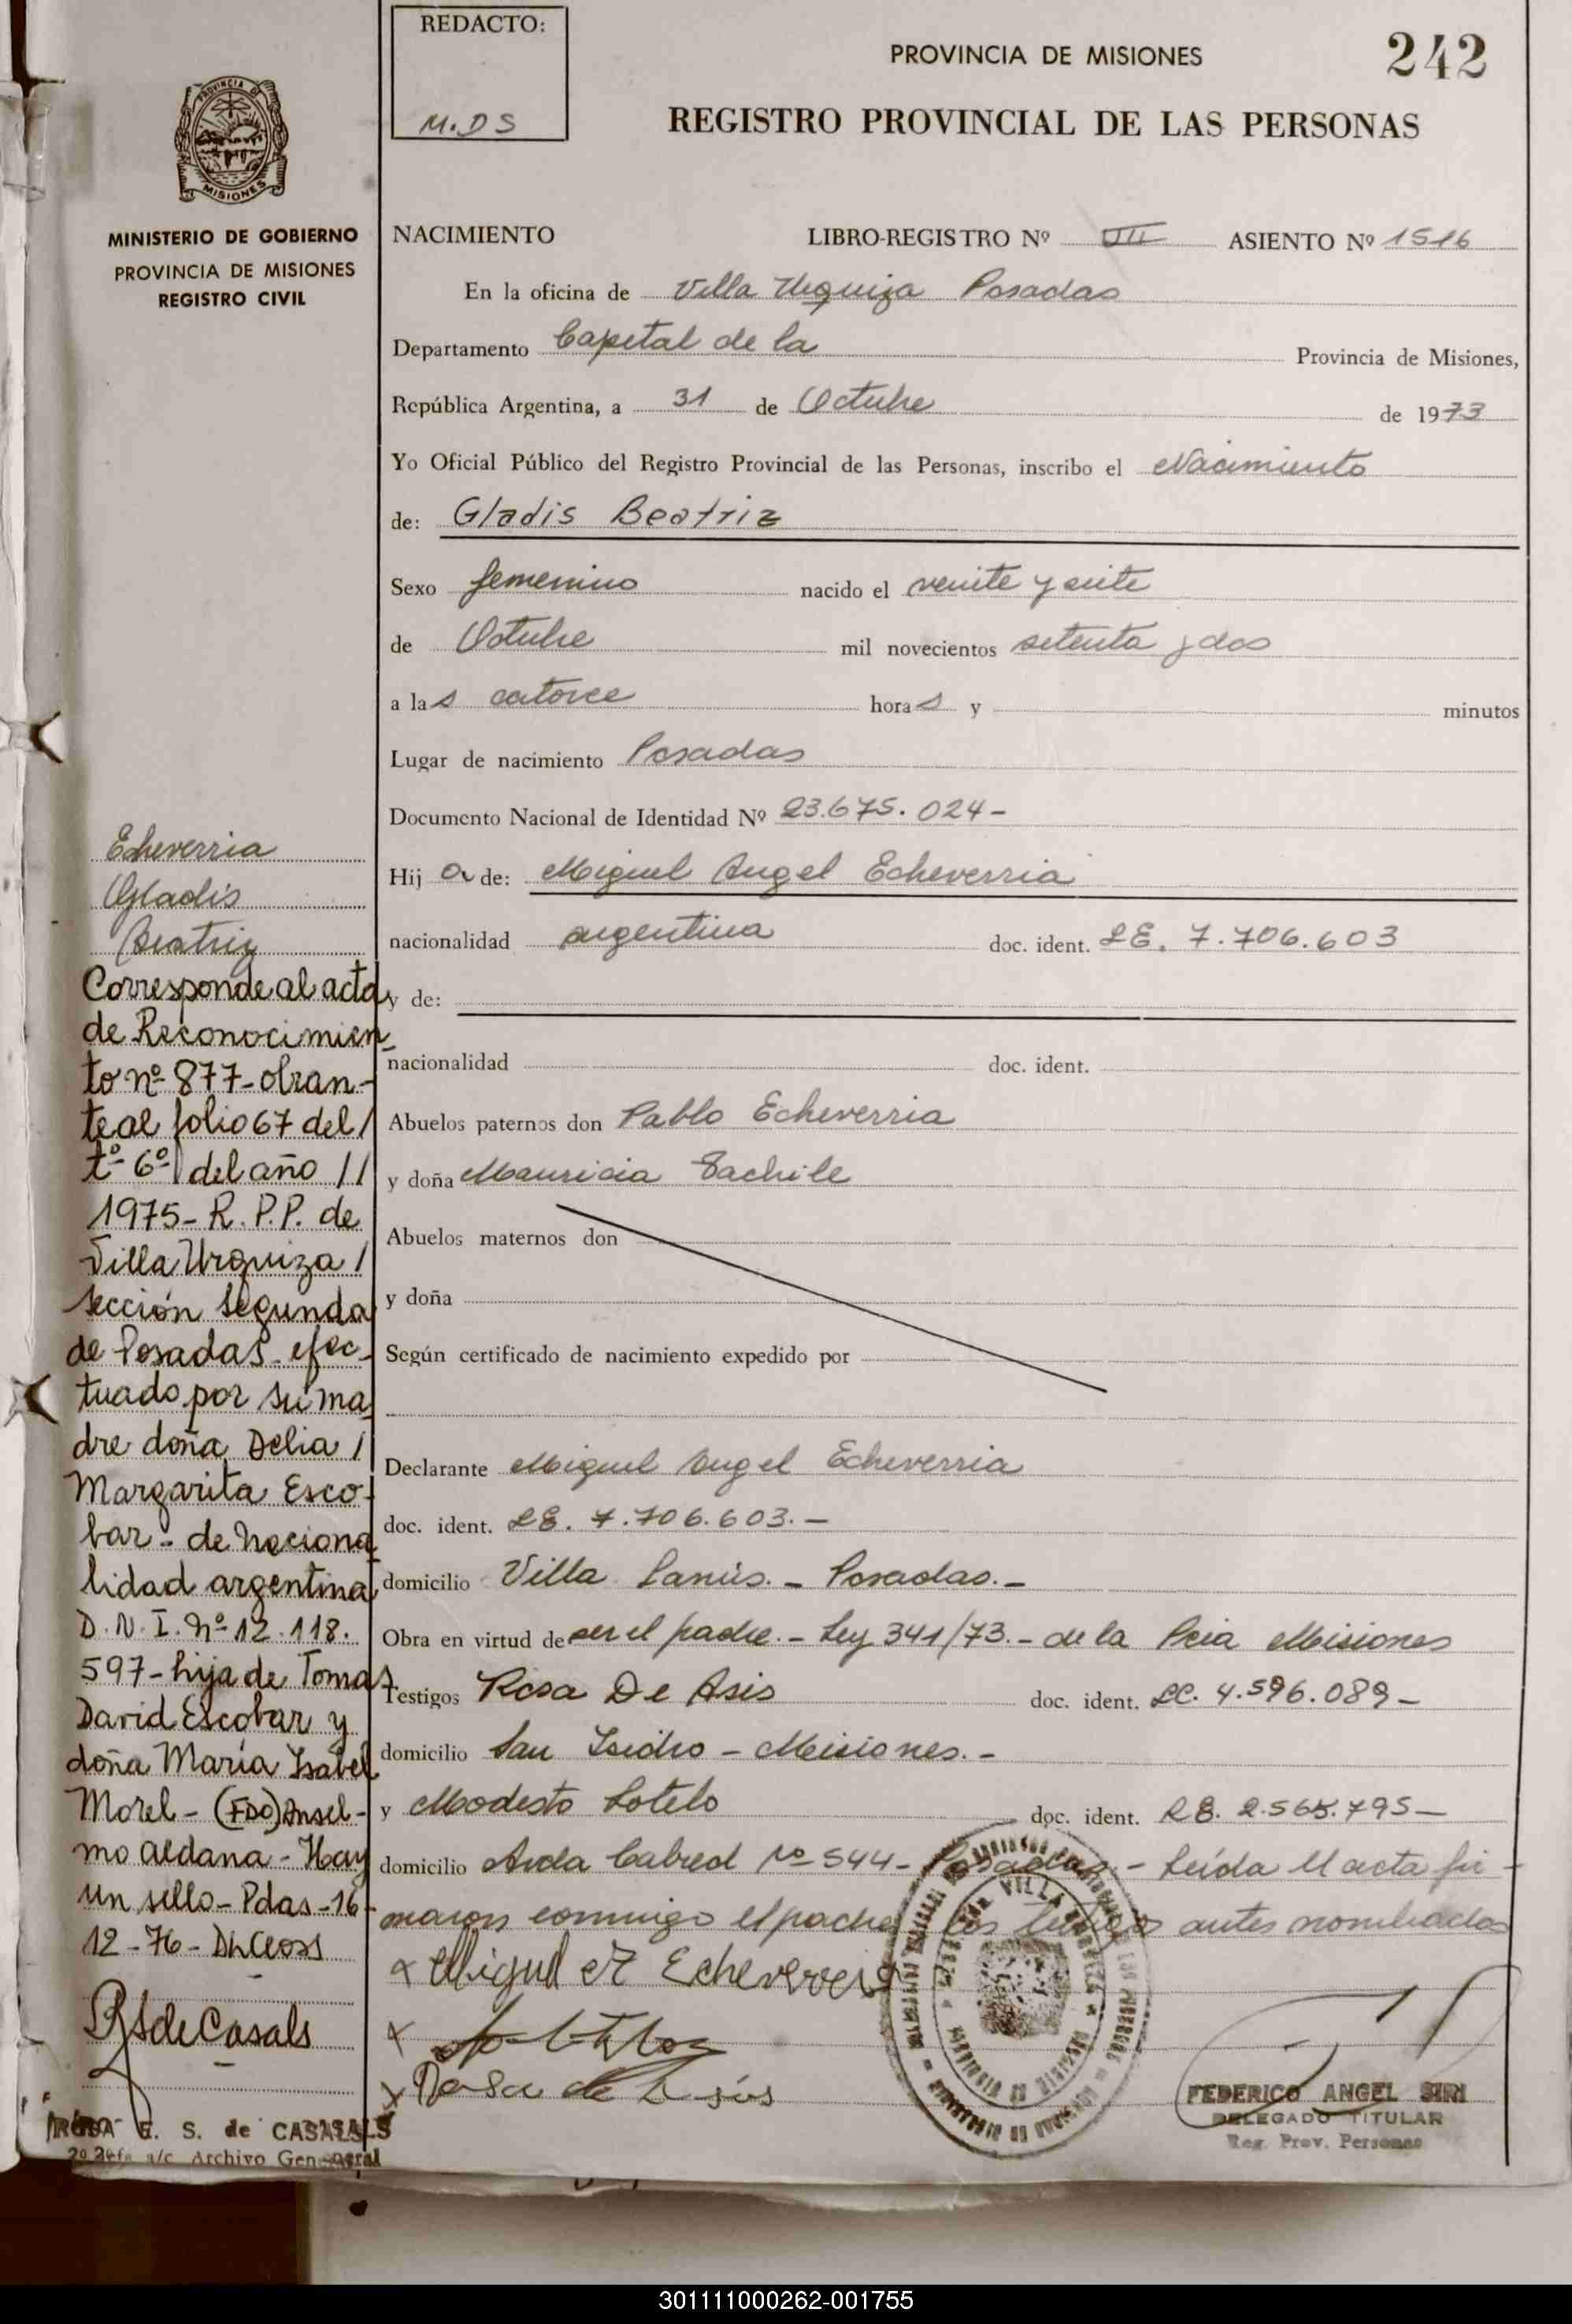 REDACTO:
M.DS
PROVINCIA DE MISIONES
242
REGISTRO PROVINCIAL DE LAS PERSONAS
PROVINCIA DE
MISIONES
MINISTERIO DE GOBIERNO
PROVINCIA DE MISIONES
REGISTRO CIVIL
NACIMIENTO LIBRO-REGISTRO Nº III ASIENTO Nº 1516
En la oficina de Villa Urquiza Posadas
Departamento Capital de la Provincia de Misiones,
República Argentina, a 31 de Octubre de 1973
Yo Oficial Público del Registro Provincial de las Personas, inscribo el Nacimiento
de: Gladis Beatriz
Sexo femenino nacido el veinte y siete
de Octubre mil novecientos setenta y dos
a las catorce horas y minutos
Lugar de nacimiento Posadas
Documento Nacional de Identidad Nº 23.675.024-
Hija de: Miguel Angel Echeverria
nacionalidad argentina doc. ident. LE. 7.706.603
y de:
nacionalidad doc. ident.
Abuelos paternos don Pablo Echeverria
y doña Mauricia
Abuelos maternos don
y doña
Según certificado de nacimiento expedido por
Declarante Miguel Angel Echeverria
doc. ident. LE. 7.706.603.-
domicilio Villa Lanús.- Posadas.-
Obra en virtud de ser el padre.- Ley 341/73.- de la Pcia Misiones
Testigos Rosa De Asis doc. ident. LC. 4.596.089-
domicilio San Isidro - Misiones.-
y Modesto Sotelo doc. ident. 795-
domicilio Avda Cabred Nº 544- Posadas.- Leída el acta fir-
maron conmigo el padre los testigos antes nombrados
Echeverria
Gladis
Beatriz
Corresponde al acta
de Reconocimien-
to nº 877-obran-
te al folio 67 del/
tº 6º del año //
1975- R.P.P. de
Villa Urquiza /
sección segunda
de Posadas efec-
tuado por su ma
dre doña Delia /
Margarita Esco-
bar - de naciona
lidad argentina
D.N.I. nº 12.118.
597- hija de Tomas
David Escobar y
doña María Isabel
Morel - (FDO) Ansel-
mo Aldana - Hay
un sello - Pdas - 16-
12-76-
RSdeCasals
E. S. de CASALS
a/c Archivo General
x Miguel A Echeverria
x
x Rosa de Asis
VILLA
FEDERICO ANGEL SIRI
DELEGADO TITULAR
Reg. Prov. Personas
301111000262-001755